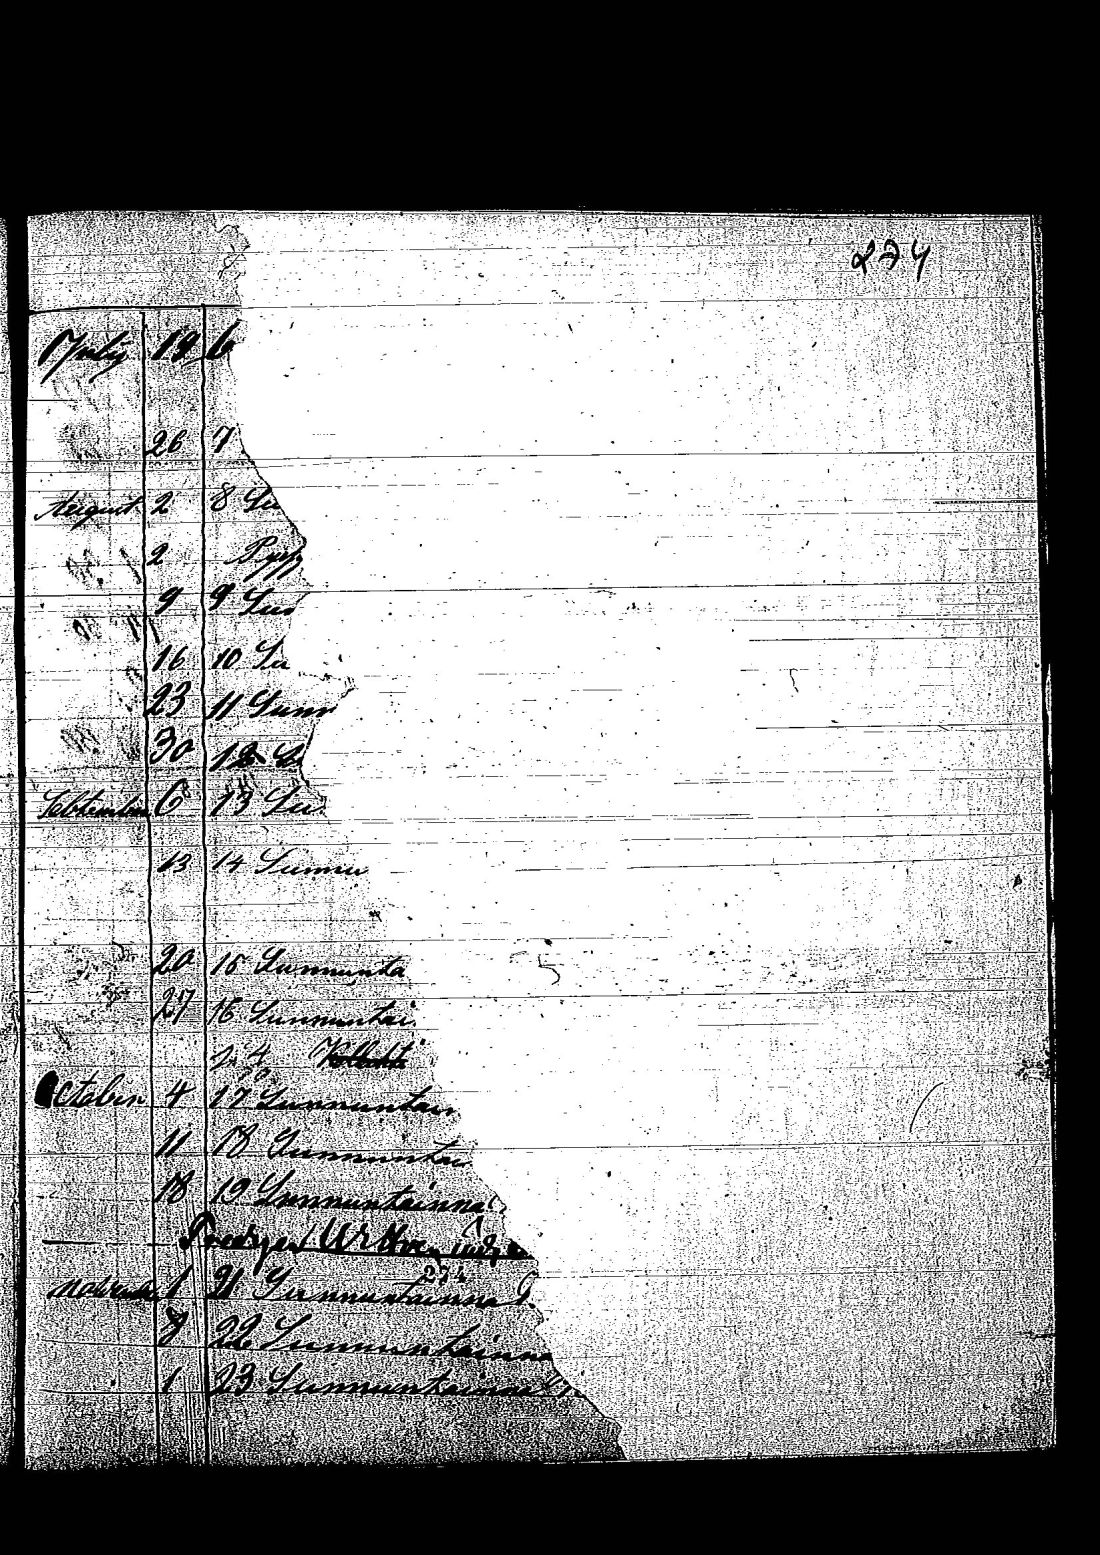 274
July 19 6
26 7
August 2 8 Su
2 Pyh
9 9 Sun
16 10 Su
23 11 Sunn
30 12 S
September 6 13 Su
13 14 Sunnu
20 15 Sunnunta
27 16 Sunnuntai
24 Kollehti
October 4 17 Sunnuntain
11 18 Sunnuntai
18 19 Sunnuntainna
274
November 1 21 Sunnuntainna
8 22 Sunnuntainna
1 23 Sunnuntainna